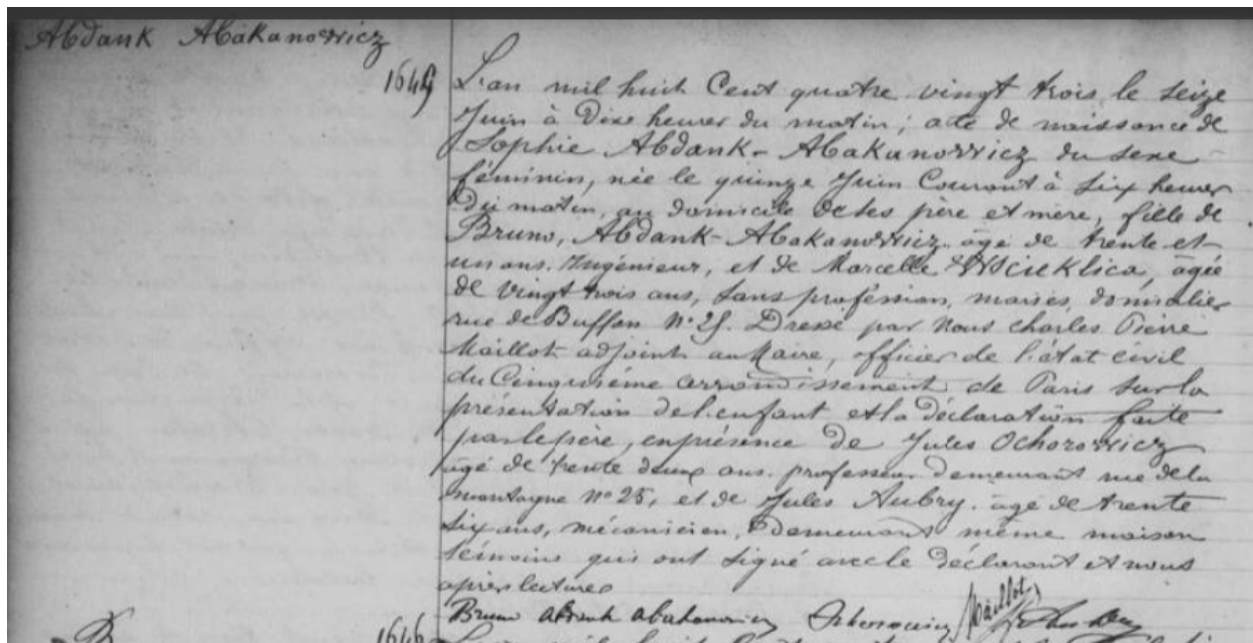 Abdank Abakanowicz
1645
L'an mil huit Cent quatre vingt trois le seize
Juin à Dix heures du matin; acte de naissance de
Sophie Abdank-Abakanowicz du sexe
féminin, née le quinze Juin Courant à six heures
Du matin, au domicile de ses père et mère, fille de
Bruno, Abdank-Abakanowicz, âgé de trente et
un ans. Ingénieur, et de Marcelle Wscieklica, agée
de vingt trois ans, sans profession, mariés, domiciliés
rue de Buffon N° 25. Dressé par Nous Charles Pierre
Maillot adjoint au Maire, officier de l'état civil
du Cinquième arrondissement de Paris sur la
présentation de l'enfant et la déclaration faite
par le père, en présence de Jules Ochorowicz
âgé de trente deux ans. professeur demeurant rue de la
montagne n° 25, et de Jules Aubry. âgé de trente
six ans, mécanicien, demeurant même maison
témoins qui ont signé avec le déclarant et nous
après lecture
Bruno Abdank Abakanowicz Ochorowicz Maillot J. Aubry
1646